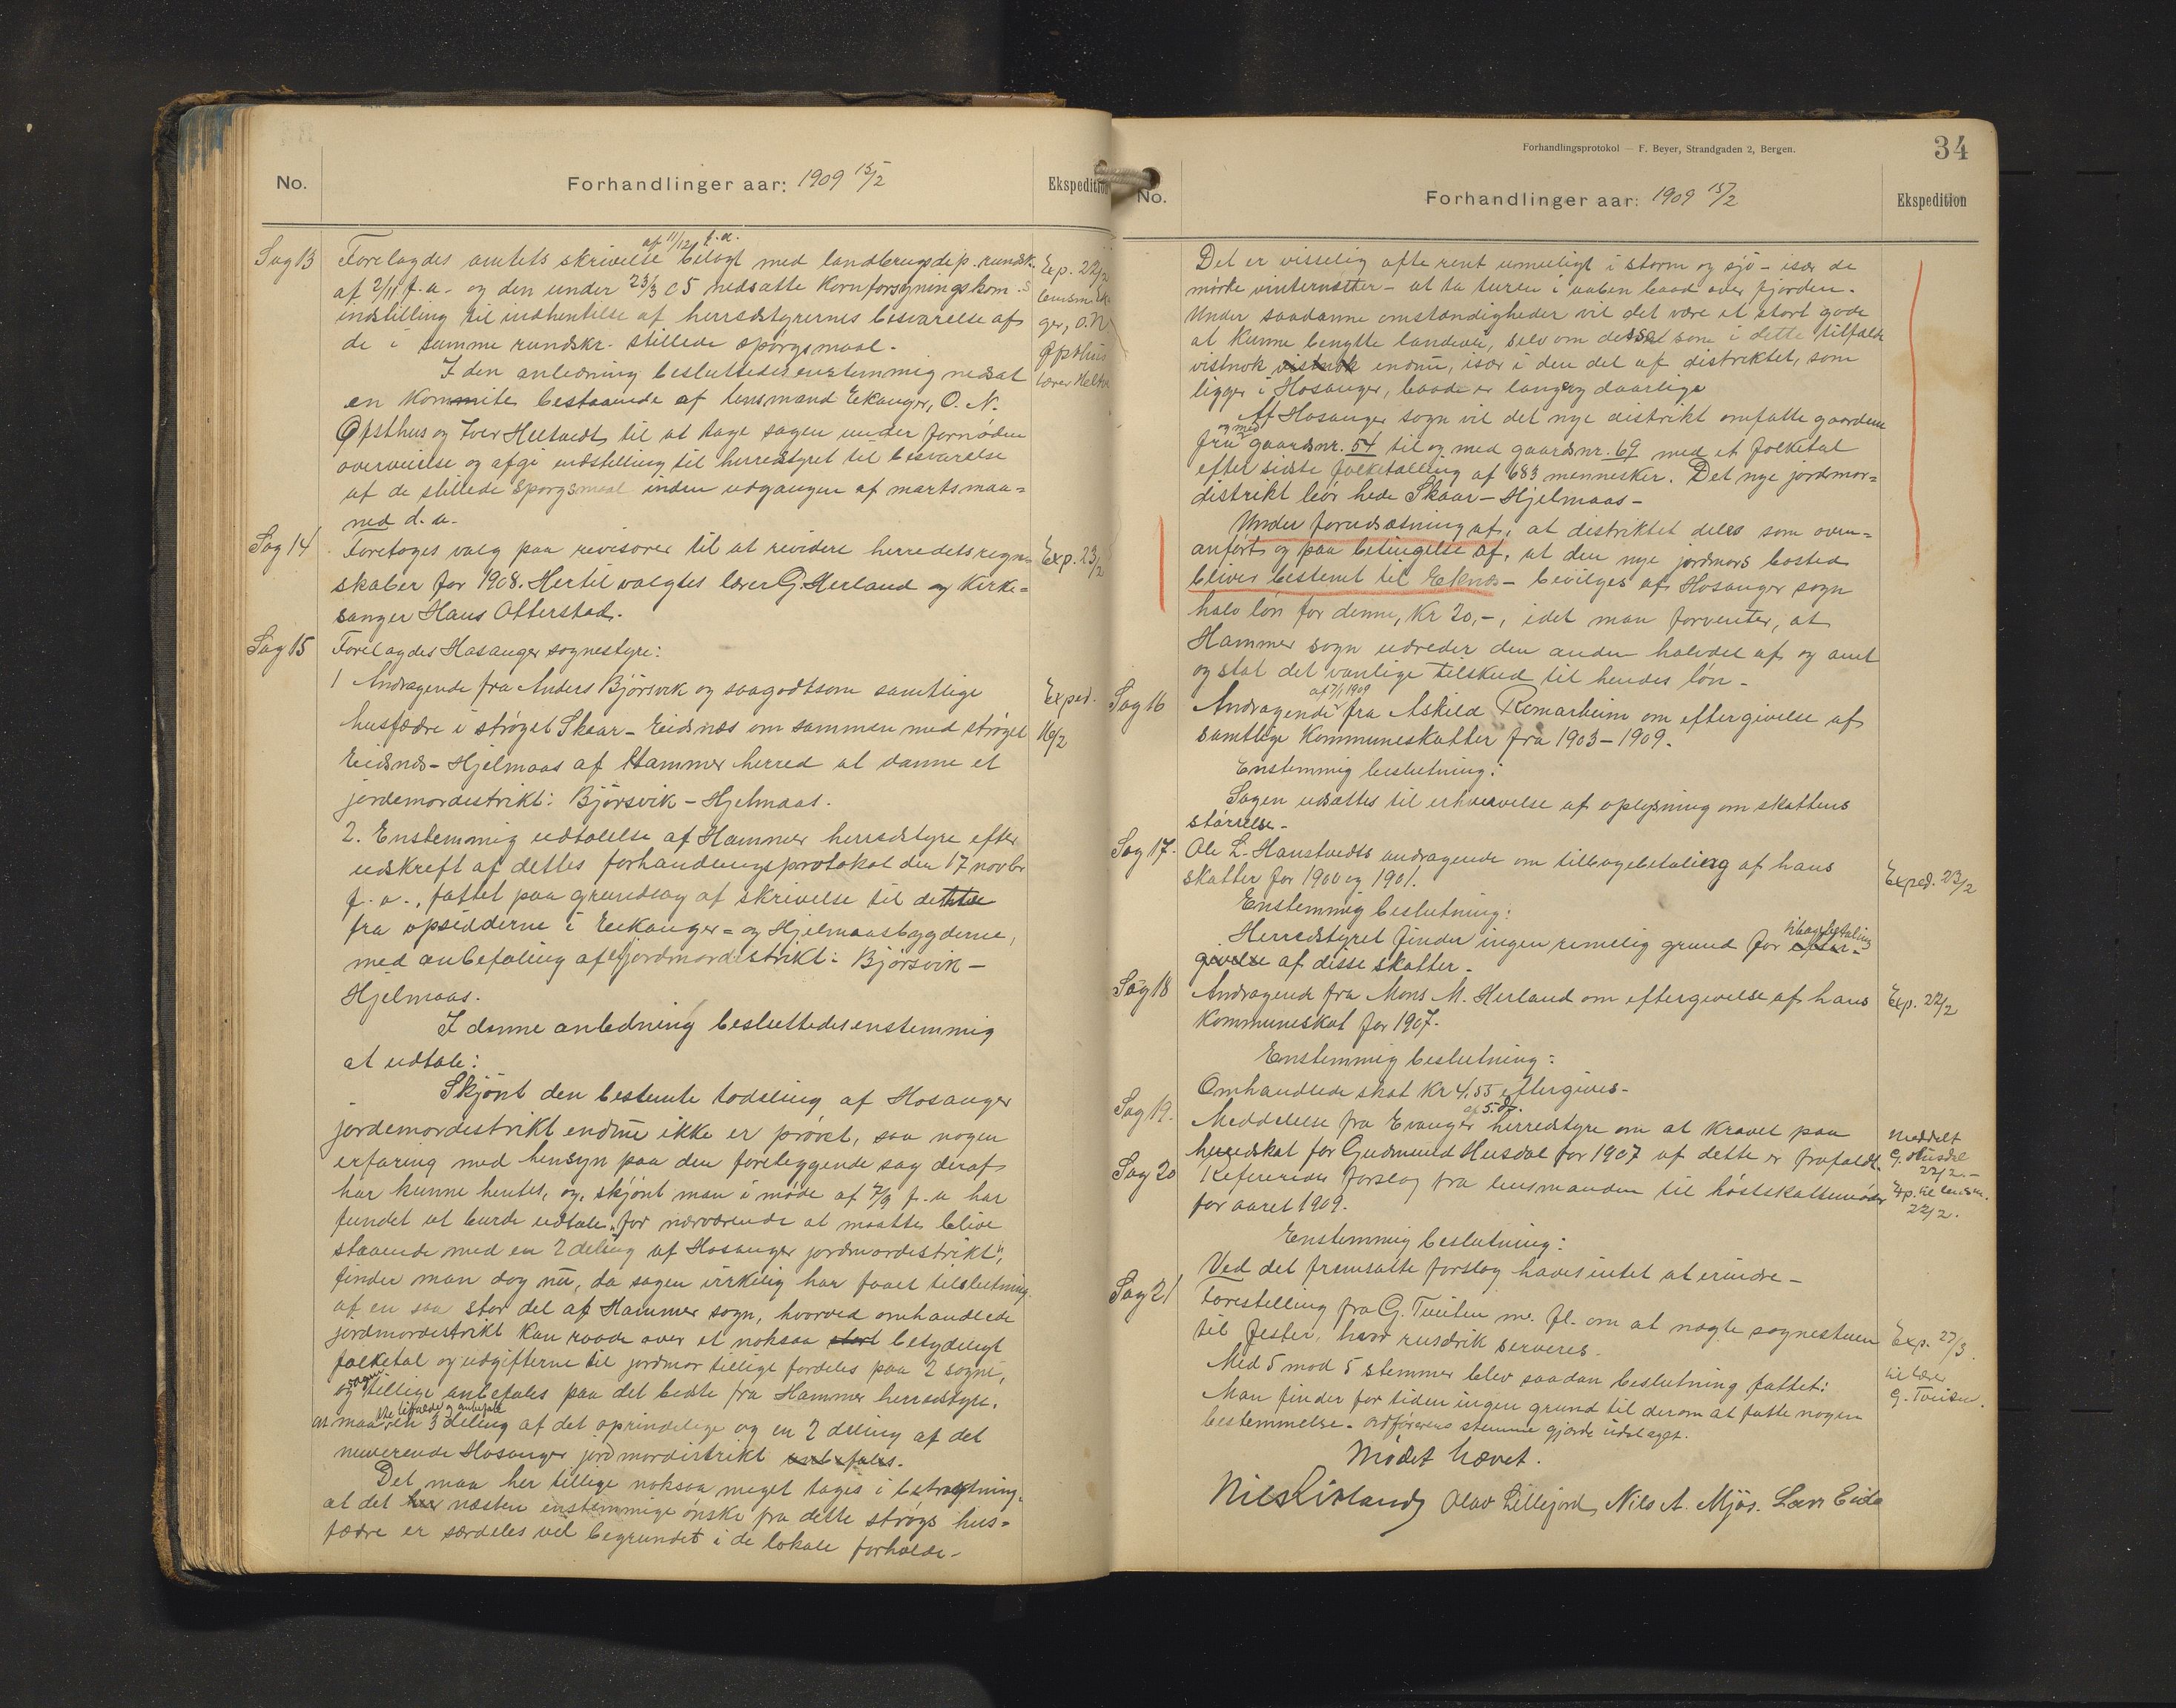 No.
Forhandlinger aar: 1909 15/2
Ekspedition
Sag 13
Forelagdes amtets skrivelse af 11/12 f.a. bilagt med landbrugsdep. rundsk.
af 2/11 f.a. og den under 23/3 05 nedsatte Kornforsyningskom.s
indstilling til indhentelse af herredstyrernes besvarelse af
de i samme rundskr. stillede spørgsmaal.
I den anledning besluttedes enstemmig nedsat
en Kommite bestaaende af lensmand Eekanger, O. N.
Øpsthus og Iver Heltvedt til at tage sagen under fornøden
overveielse og afgi indstilling til herredstyret til besvarelse
af de stillede spørgsmaal inden udgangen af martsmaa=
ned d.a.
Exp. 22/2
lensm. Ek
ger, O. N
Øpsthus
lærer Heltv
Sag 14
Foretoges valg paa revisorer til at revidere herredets regn=
skaber for 1908. Hertil valgtes lærer G. Herland og Kirke=
sanger Hans Otterstad.
Exp. 23/2
Sag 15
Forelagdes Hosanger sognestyre:
1 Andragende fra Anders Bjørsvik og saagodtsom samtlige
husfædre i strøget Skaar-Eidsnæs om sammen med strøget
Eidsnæs-Hjelmaas af Hammer herred at danne et
jordemordistrikt: Bjørsvik-Hjelmaas.
Exped.
16/2
2. Enstemmig udtalelse af Hammer herredstyre efter
udskrift af dettes forhandlingsprotokol den 17 novbr
f.a., fattet paa grundlag af skrivelse til dette
fra opsidderne i Eekanger= og Hjelmaasbygderne,
med anbefaling af et jordmordistrikt: Bjørsvik-
Hjelmaas.
I denne anledning besluttedes enstemmig
at udtale:
Skjønt den bestemte todeling af Hosanger
jordemordistrikt endnu ikke er prøvet, saa nogen
erfaring med hensyn paa den foreliggende sag deraf
har kunne hentes, og, skjønt man i møde af 7/9 f.a har
fundet at burde udtale "for nærværende at maatte blive
staaende med en 2 deling af Hosanger jordmordistrikt",
finder man dog nu, da sagen virkelig har faaet tilslutning
af en saa stor del af Hammer sogn, hvorved omhandlede
jordmordistrikt kan raade over et noksaa stort betydeligt
folketal og udgifterne til jordmor tillige fordeles paa 2 sogne,
og sagen tillige anbefales paa det bedste fra Hammer herredstyre,
at maa en 3 deling af det oprindelige og en 2 deling af det
nuværende Hosanger jordmordistrikt anbefales.
Det maa her tillige noksaa meget tages i betragtning,
at det her næsten enstemmige ønske fra dette strøgs hus=
fædre er særdeles vel begrundet i de lokale forholde-
Forhandlingsprotokol — F. Beyer, Strandgaden 2, Bergen.
34
No.
Forhandlinger aar: 1909 15/2
Ekspedition
Det er visselig ofte rent umuligt i storm og sjø - især de
mørke vinternætter - at ta turen i aaben baad over fjorden.
Under saadanne omstændigheder vil det være et stort gode
at kunne benytte landevei, selv om denne som i dette tilfælde
vistnok vistnok endnu, især i den del af distriktet, som
ligger i Hosanger, baade er lang og daarlig
Af Hosanger sogn vil det nye distrikt omfatte gaardene
fra og med gaardsnr. 54 til og med gaardsnr. 69 med et folketal
efter sidste folketælling af 683 mennesker. Det nye jordmor=
distrikt bør hede Skaar-Hjelmaas-
Under forudsætning af, at distriktet deles som oven=
anført og paa betingelse af, at den nye jordmors bosted
blives bestemt til Eeknæs - bevilges af Hosanger sogn
halv løn for denne, Kr 20,-, idet man forventer, at
Hammer sogn udreder den anden halvdel af og amt
og stat det vanlige tilskud til hendes løn-
Sag 16
Andragende af 7/1 1909 fra Askild Romarheim om eftergivelse af
samtlige Kommuneskatter fra 1903-1909.
Enstemmig beslutning:
Sagen udsættes til erhvervelse af oplysning om skattens
størrelse-
Sag 17.
Ole L. Hanstvedts andragende om tilbagebetaling af hans
skatter for 1900 og 1901.
Exped. 23/2
Enstemmig beslutning:
Herredstyret finder ingen rimelig grund for tilbagebetaling efter-
givelse af disse skatter.
Sag 18
Andragende fra Mons M. Herland om eftergivelse af hans
Kommuneskat for 1907.
Exp. 22/2
Enstemmig beslutning:
Omhandlede skat kr 4,55 eftergives-
Sag 19.
Meddelelse fra Evanger herredstyre af 5. ds. om at Kravet paa
herredskat for Gudmund Husdal for 1907 af dette er frafaldt.
Meddelt
G. Husdal
22/2.-
Sag 20
Refereredes forslag fra lensmanden til høstskattemøder
for aaret 1909.
Exp. til lensm.
22/2.
Enstemmig beslutning:
Ved det fremsatte forslag haves intet at erindre-
Sag 21
Forestilling fra G. Tveiten m. fl. om at nægte sognestuen
til fester, hvor rusdrik serveres.
Exp. 27/3.
til lærer
G. Tveiten.
Med 5 mod 5 stemmer blev saadan beslutning fattet:
Man finder for tiden ingen grund til derom at fatte nogen
bestemmelse. Ordførerens stemme gjorde udslaget.
Mødet hævet.
Nils Risland Olav Lillejord Nils A. Mjøs. Lars Eide